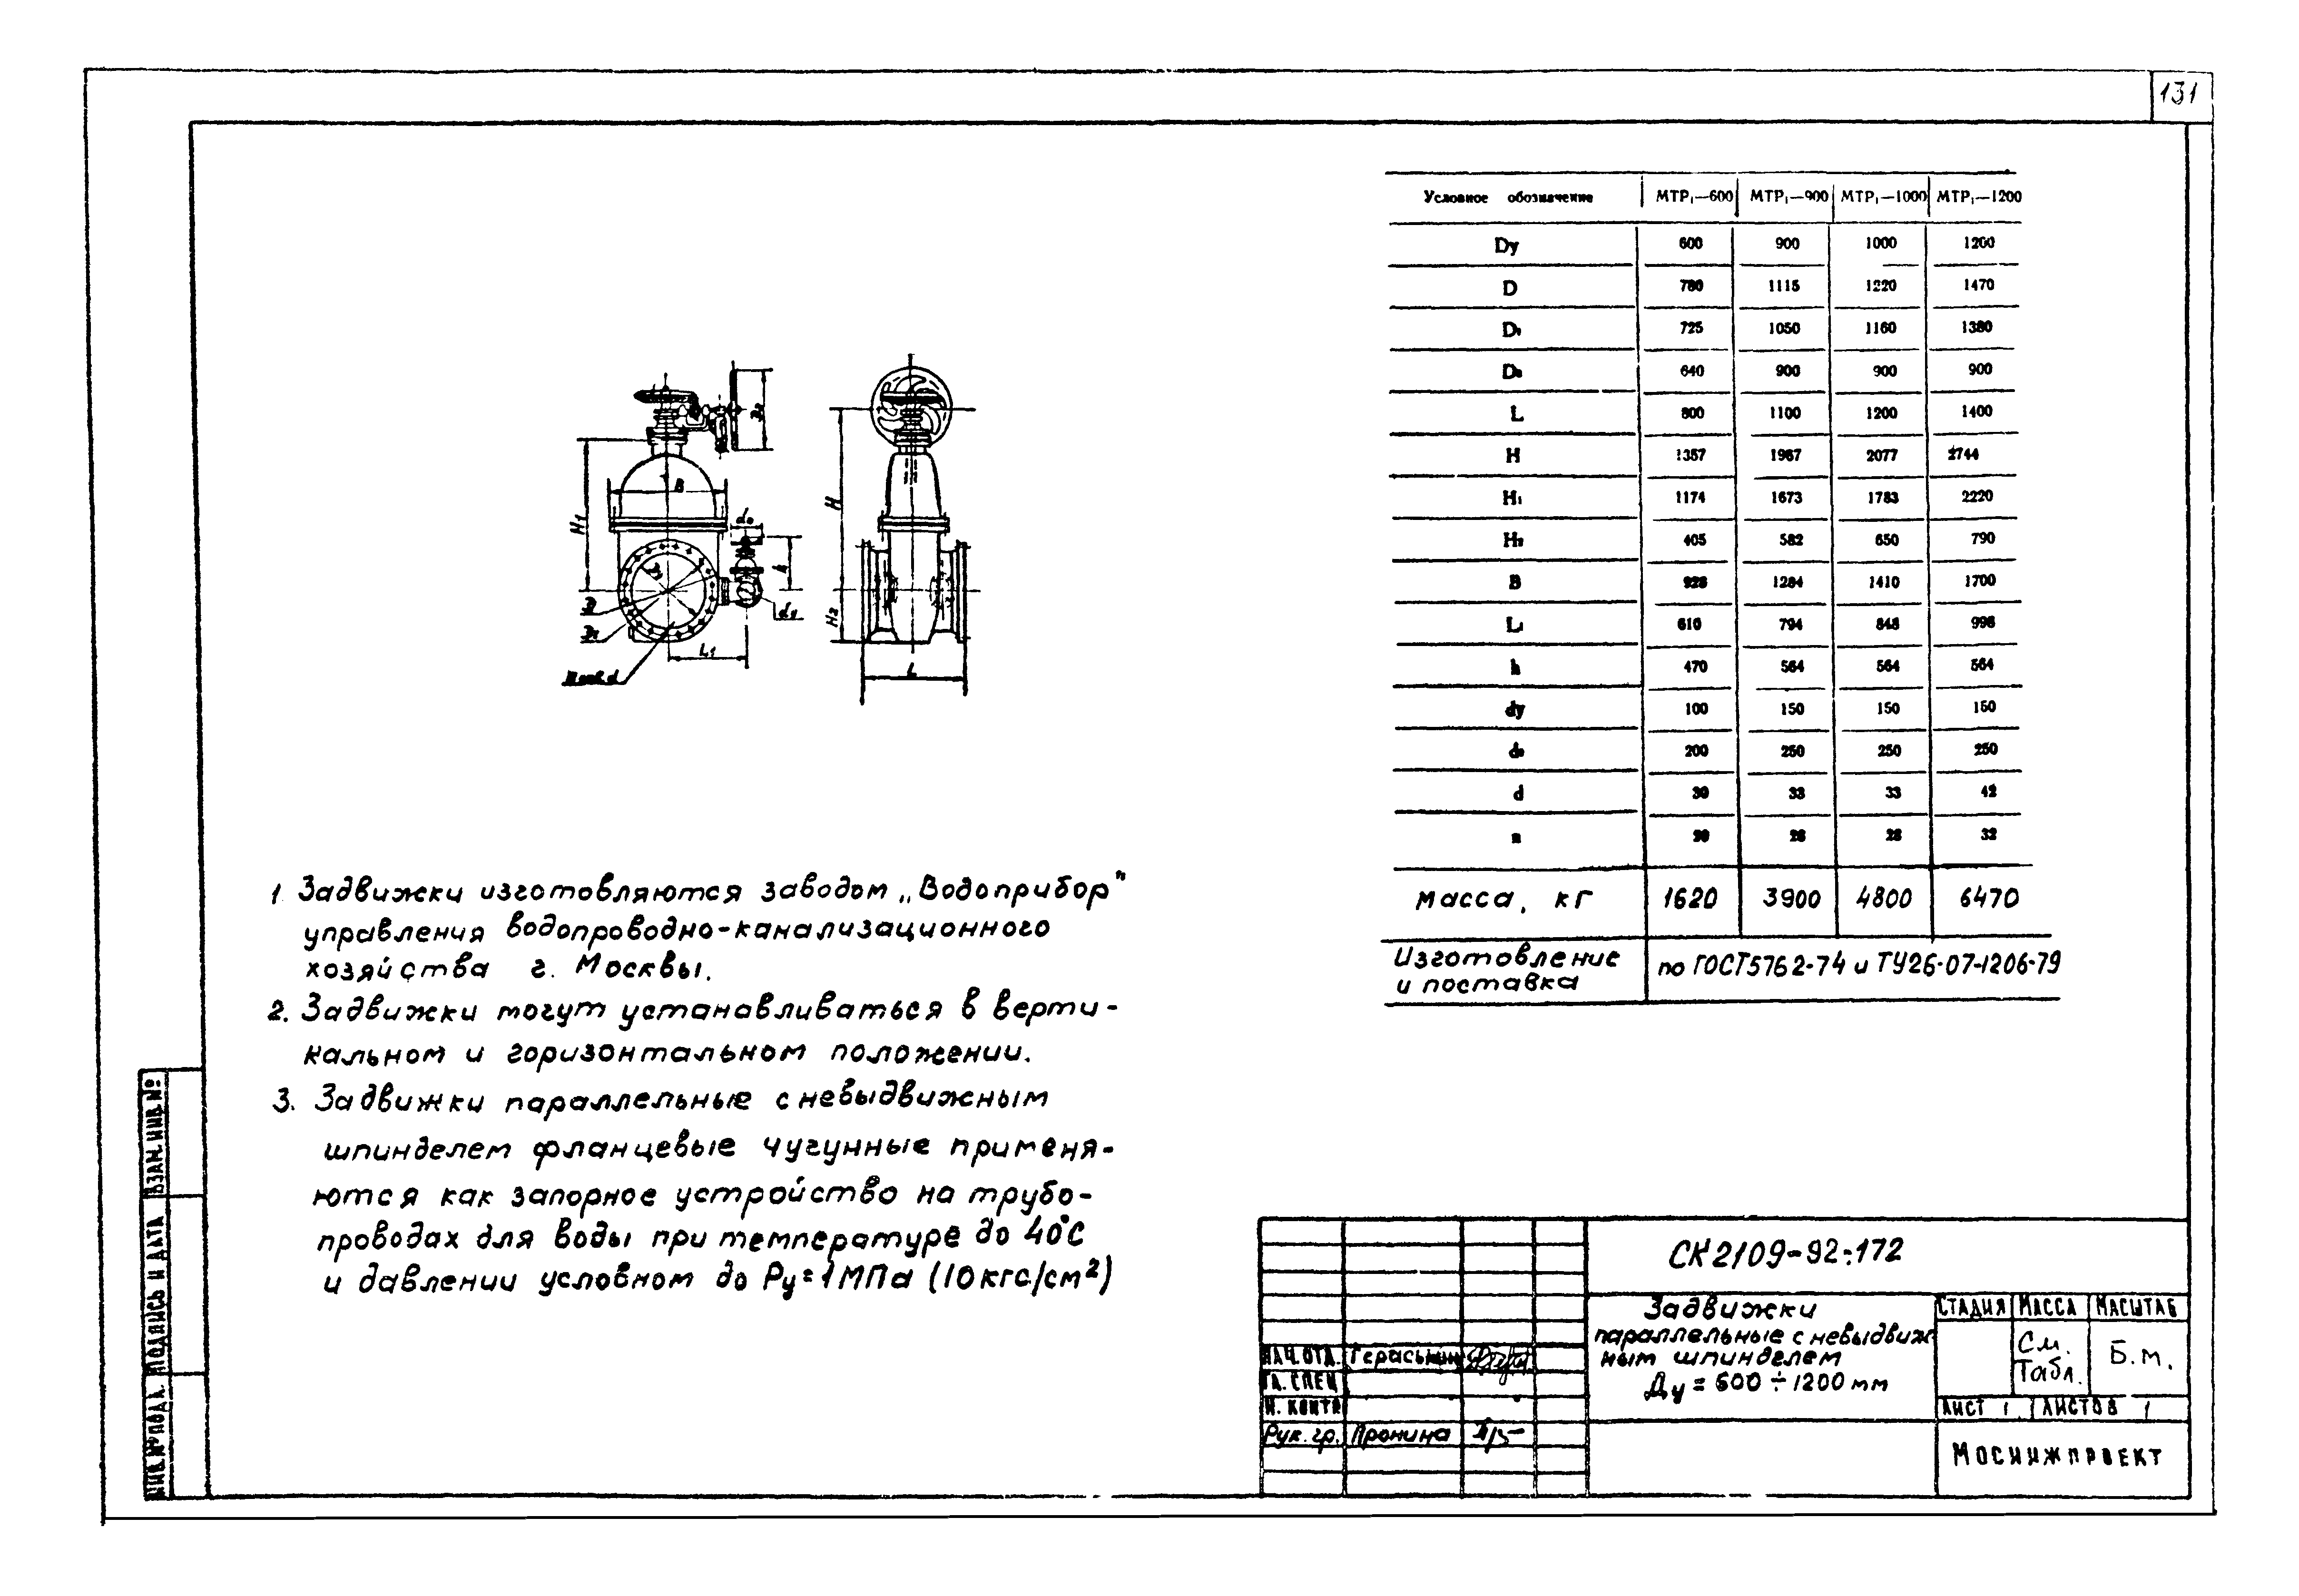 131
Условное обозначение МТР₁—600 МТР₁—900 МТР₁—1000 МТР₁—1200
Dу 600 900 1000 1200
D 780 1115 1220 1470
D₁ 725 1050 1160 1380
D₀ 640 900 900 900
L 800 1100 1200 1400
H 1357 1967 2077 2744
H₁ 1174 1673 1783 2220
H₂ 405 582 650 790
B 928 1284 1410 1700
L₁ 610 794 848 998
h 470 564 564 564
dу 100 150 150 150
d₀ 200 250 250 250
d 30 33 33 42
n 20 28 28 32
Масса, кг 1620 3900 4800 6470
Изготовление
и поставка
по ГОСТ5762-74 и ТУ26-07-1206-79
H₁
B
d₀
h
dу
D
D₁
L₁
H
H₂
L
1. Задвижки изготовляются заводом „Водоприбор"
управления водопроводно-канализационного
хозяйства г. Москвы.
2. Задвижки могут устанавливаться в верти-
кальном и горизонтальном положении.
3. Задвижки параллельные с невыдвижным
шпинделем фланцевые чугунные применя-
ются как запорное устройство на трубо-
проводах для воды при температуре до 40°С
и давлении условном до Ру=1МПа (10кгс/см²)
ВЗАМ.ИНВ.№
ПОДПИСЬ И ДАТА
ИНВ.№ПОДЛ.
СК2109-92.172
Задвижки
параллельные с невыдвиж
ным шпинделем
Ду = 600 ÷ 1200 мм
СТАДИЯ МАССА МАСШТАБ
См.
Табл.
Б.м.
ЛИСТ 1 ЛИСТОВ 1
МОСИНЖПРОЕКТ
НАЧ.ОТД. Гераськин
ГЛ. СПЕЦ
Н. КОНТР
Рук. гр. Пронина